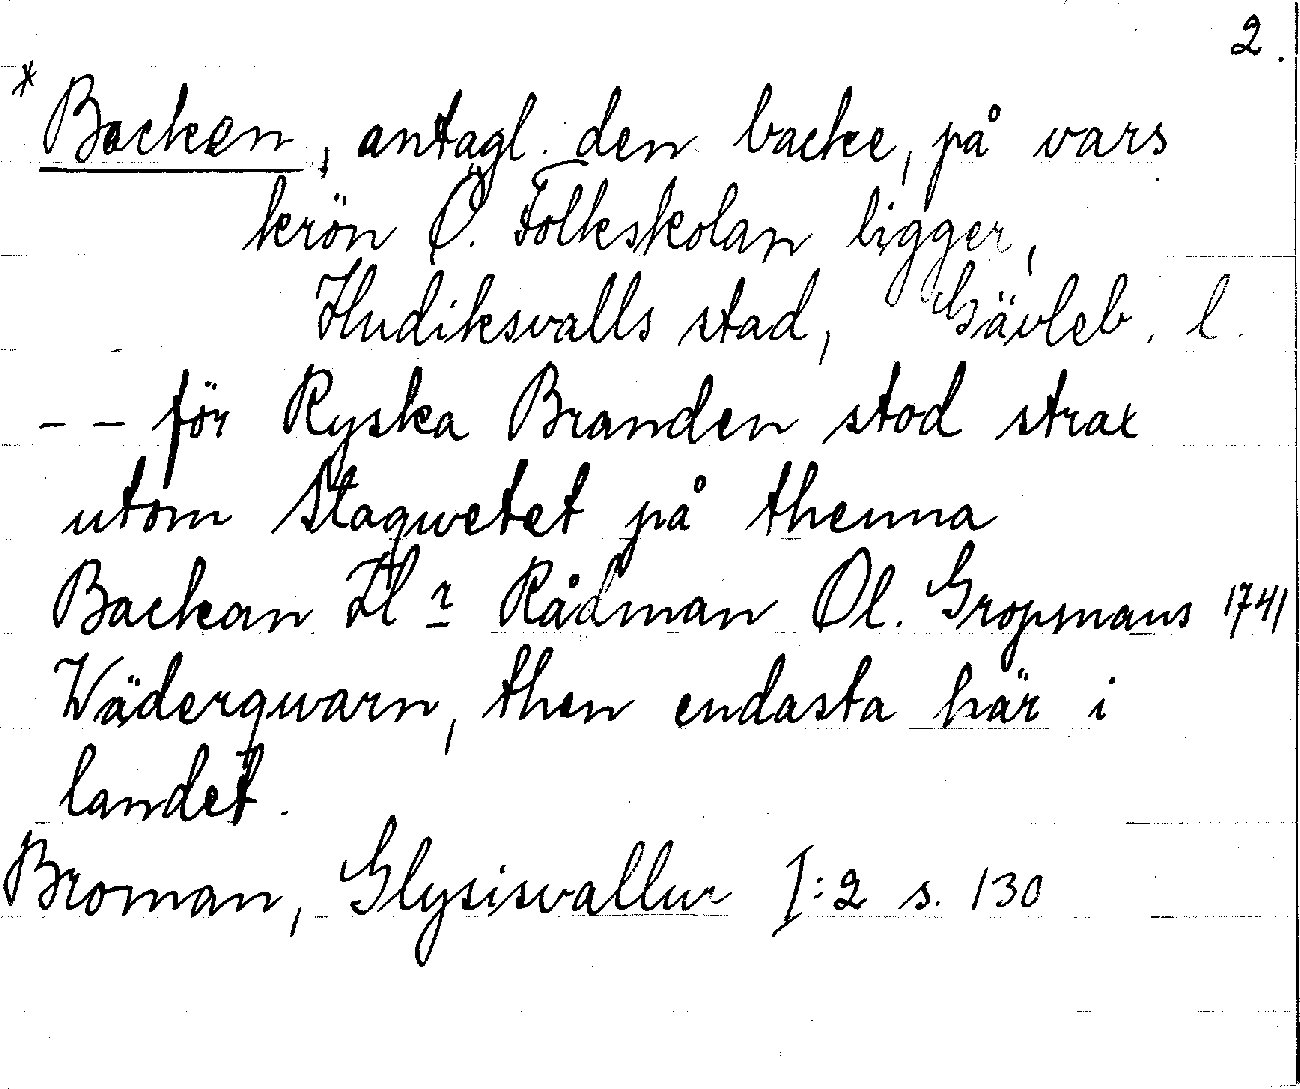 2.
* Backen, antagl. den backe, på vars
krön Ö. Folkskolan ligger,
Hudiksvalls stad, Gävleb. l.
- - för Ryska Branden stod strax
utom Staqwetet på thenna
Backan H r Rådman Ol. Gropmans 1741
Wäderqwarn, then endasta här i
landet.
Broman, Glysisvallur I:2 s. 130